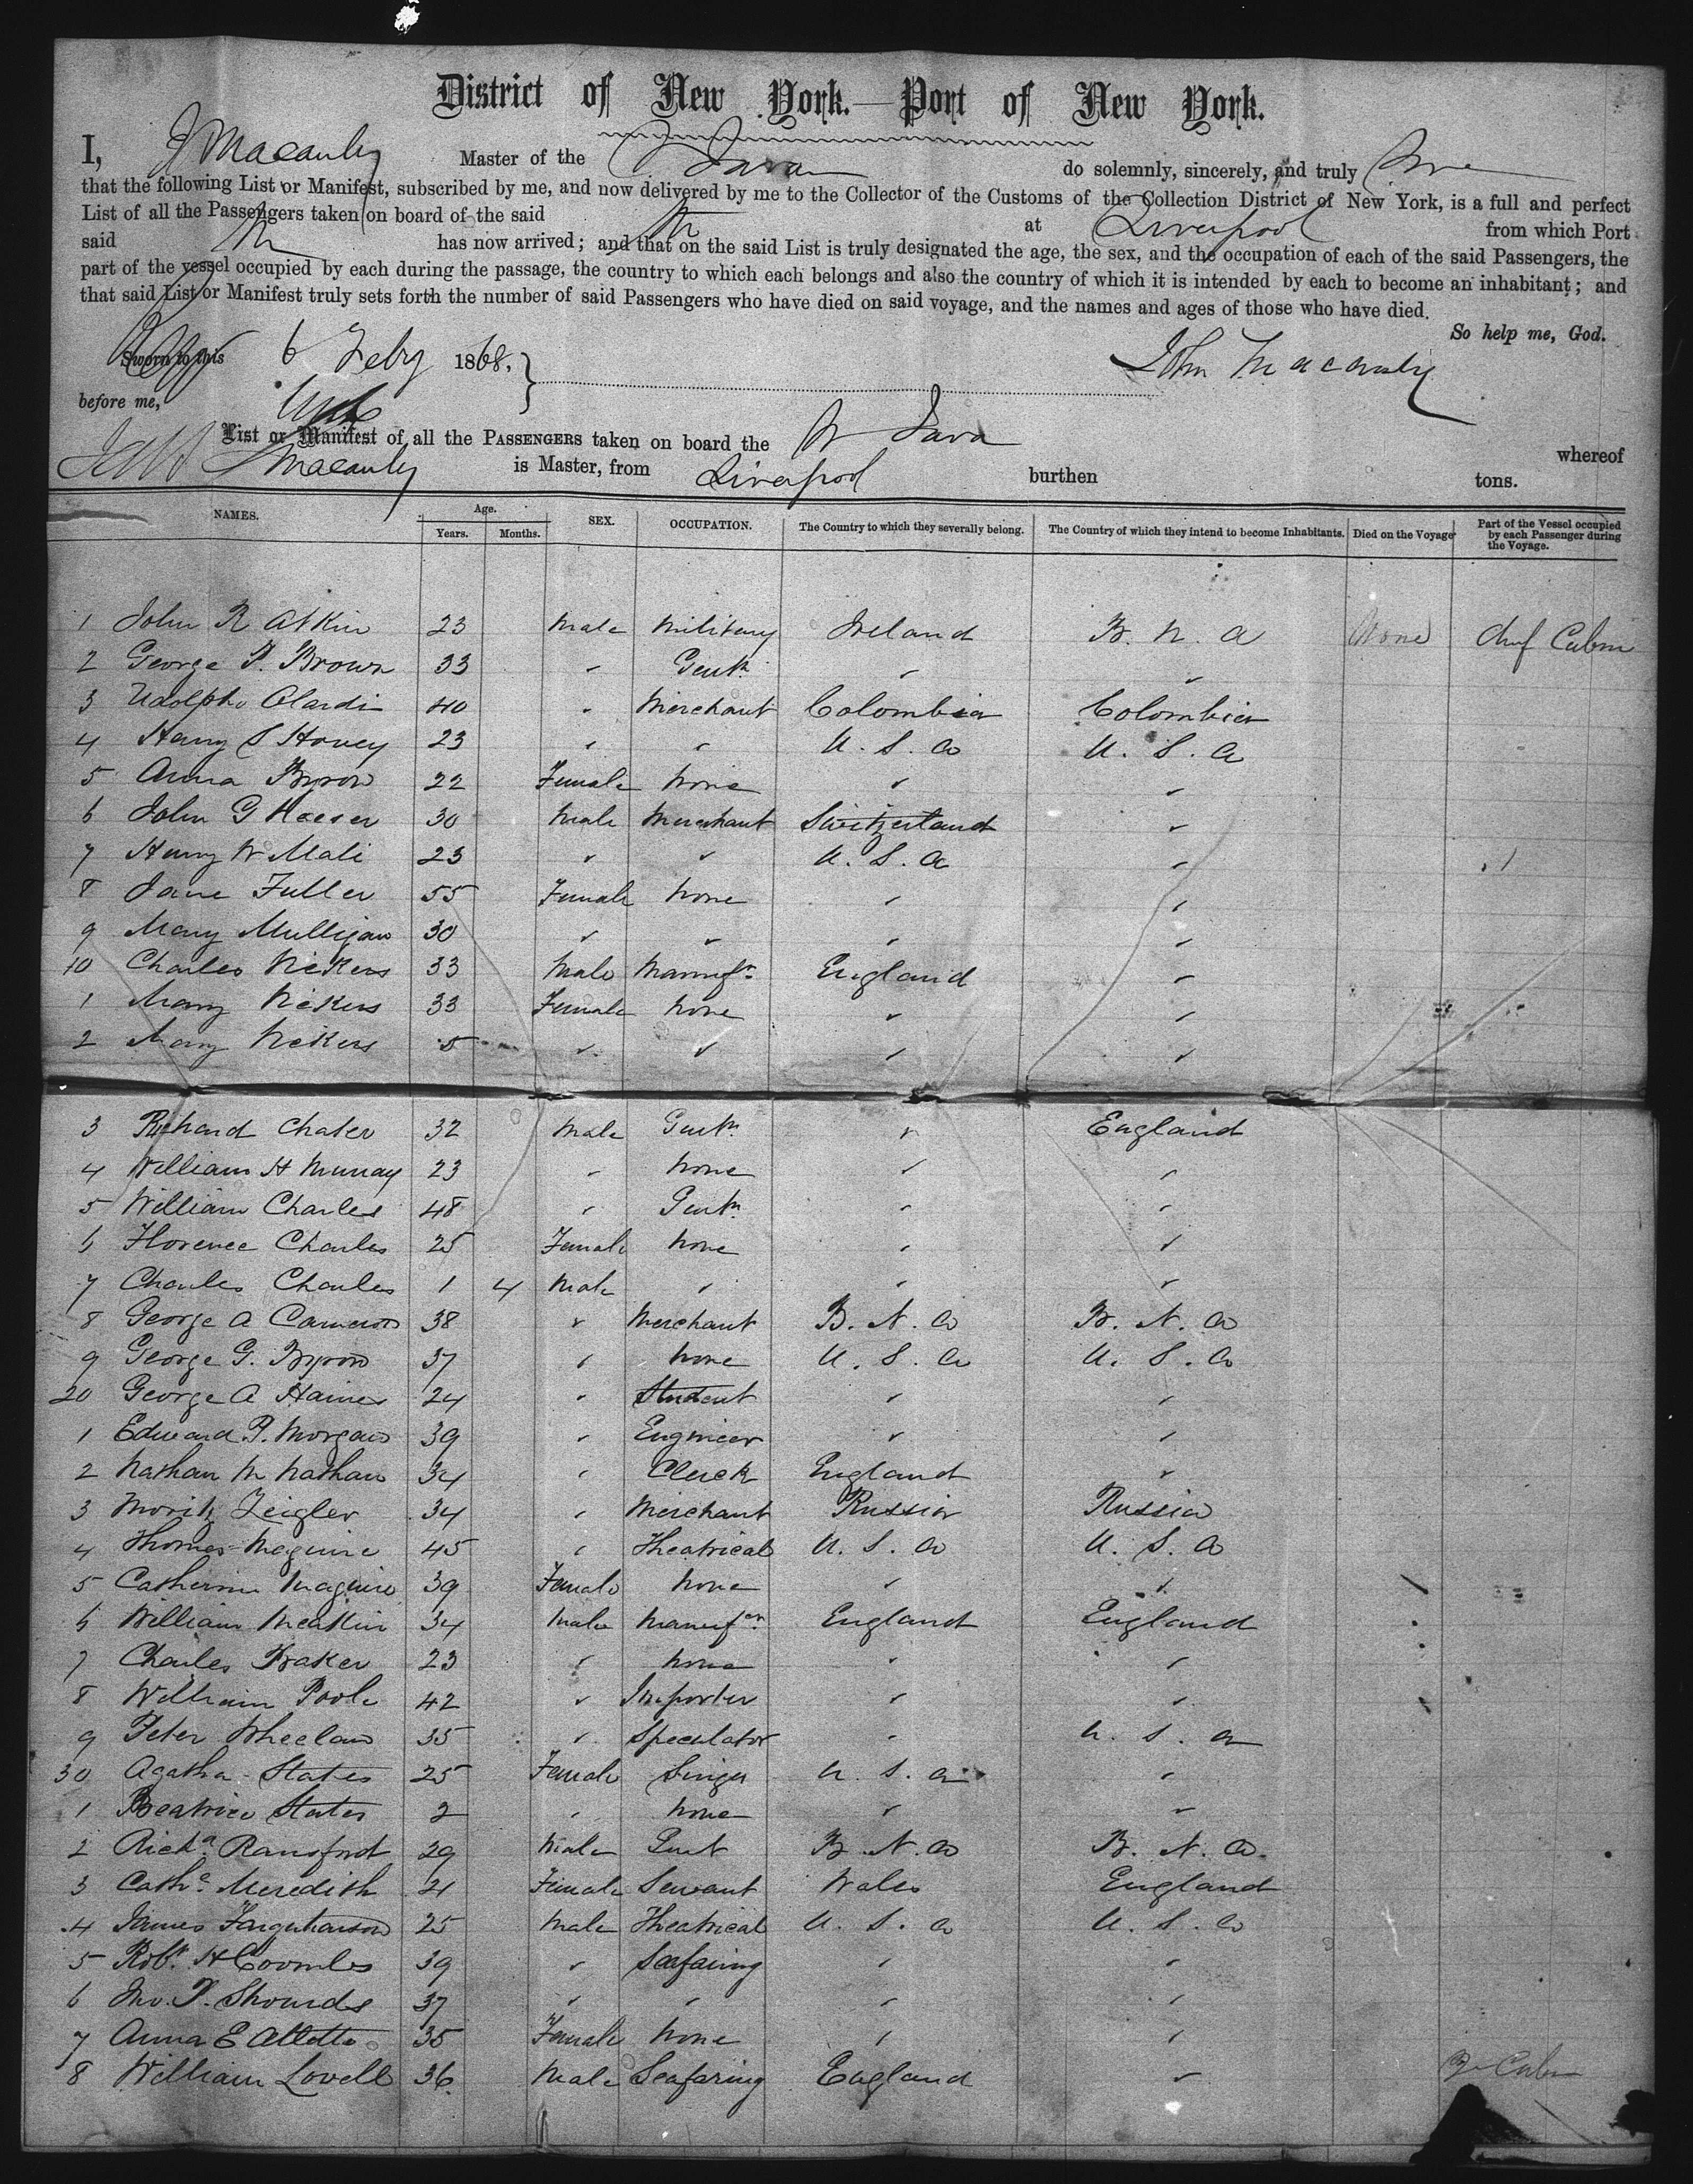 District of New York.—Port of New York.
I, J Macauley Master of the Java do solemnly, sincerely, and truly
that the following List or Manifest, subscribed by me, and now delivered by me to the Collector of the Customs of the Collection District of New York, is a full and perfect
List of all the Passengers taken on board of the said at Liverpool from which Port
said has now arrived; and that on the said List is truly designated the age, the sex, and the occupation of each of the said Passengers, the
part of the vessel occupied by each during the passage, the country to which each belongs and also the country of which it is intended by each to become an inhabitant; and
that said List or Manifest truly sets forth the number of said Passengers who have died on said voyage, and the names and ages of those who have died.
So help me, God.
Sworn to this 6 Feby 1868. John Macauley
before me,
List or Manifest of all the PASSENGERS taken on board the Java whereof
J Macauley is Master, from Liverpool burthen tons.
NAMES. Age. Years. Months. SEX. OCCUPATION. The Country to which they severally belong. The Country of which they intend to become Inhabitants. Died on the Voyage Part of the Vessel occupied by each Passenger during the Voyage.
1 John R Atkin 23 Male Military Ireland B. N. A None Chief Cabin
2 George P. Brown 33 " Gentn. " "
3 Udolpho Olardi 40 " Merchant Colombia Colombia
4 Harry S Hovey 23 " " U. S. A U. S. A
5 Anna Byron 22 Female None " "
6 John G 30 Male Merchant Switzerland "
7 Henry W Mali 23 " " U. S. A "
8 Jane Fuller 55 Female None " "
9 Mary Mulligan 30 " " " "
10 Charles Vickers 33 Male Manufr. England "
1 Mary Vickers 33 Female None " "
2 Mary Vickers 5 " " " "
3 Richard Chater 32 Male Gentn. " England
4 William H Murray 23 " None " "
5 William Charles 48 " Gentn. " "
6 Florence Charles 25 Female None " "
7 Charles Charles 1 4 Male " " "
8 George A Cameron 38 " Merchant B. N. A B. N. A
9 George G. Byron 37 " None U. S. A U. S. A
20 George A Haines 24 " Student " "
1 Edward P. Morgan 39 " Engineer " "
2 Nathan M Nathan 34 " Clerk England "
3 Moritz Zeigler 34 " Merchant Russia Russia
4 Thomas Maguire 45 " Theatrical U. S. A U. S. A
5 Catherine Maguire 39 Female None " "
6 William Meakin 34 Male Manufr. England England
7 Charles Baker 23 " None " "
8 William Poole 42 " Importer " "
9 Peter Wheelan 35 " Speculator " U. S. A
30 Agatha States 25 Female Singer U. S. A "
1 Beatrice States 2 " None " "
2 Richd. Ransford 29 Male Gent B. N. A B. N. A.
3 Cathe. Meredith 21 Female Servant Wales England
4 James Farquharson 25 Male Theatrical U. S. A U. S. A
5 Robt. H Coombs 39 " Seafaring " "
6 Jno. P. Shounds 37 " " " "
7 Anna E 35 Female None " "
8 William Lovell 36 Male Seafaring England " Cabin